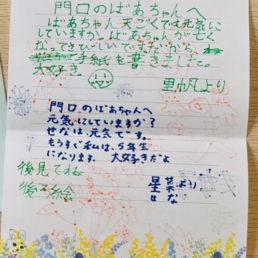 門口のばあちゃんへ
ばあちゃん天ごくでも元気に
していますか。ばあちゃんが亡く
なってさびしいですが
手紙を書きました。
大好き
里帆より
門口のばあちゃんへ
元気にしていますか?
せなは元気です。
もうすぐ私は、5年生
になります。大好きだよ
星菜より
せな
後見てね
後ろ絵